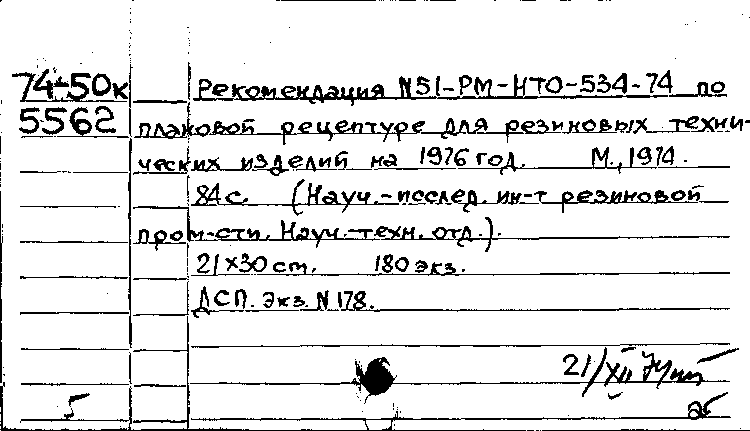 74-50к Рекомендация N51-РМ-НТО-534-74 по
5562 плановой рецептуре для резиновых техни-
ческих изделий на 1976 год. М., 1974.
84 с. (Науч.-исслед. ин-т резиновой
пром-сти. Науч.-техн. отд.).
21×30 cm. 180 экз.
ДСП. Экз. N 178.
21/XII
5